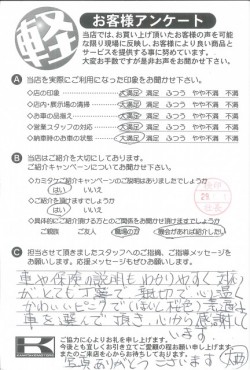 軽
お客様アンケート
当店では、お買い上げ頂いたお客様の声を可能
な限り現場に反映し、お客様により良い商品と
サービスを提供する事に努めています。
大変お手数ですが是非お声をお聞かせ下さい。
A 当店を実際にご利用になった印象をお聞かせ下さい。
◇店の印象 大満足 満足 ふつう やや不満 不満
◇店内・展示場の清掃 大満足 満足 ふつう やや不満 不満
◇お車の品揃え 大満足 満足 ふつう やや不満 不満
◇営業スタッフの対応 大満足 満足 ふつう やや不満 不満
◇納車時のお車の状態 大満足 満足 ふつう やや不満 不満
B 当店はご紹介を大切にしております。
ご紹介キャンペーンについてお聞かせ下さい。
◇カミタケご紹介キャンペーンのご説明はありましたでしょうか
はい いいえ
◇ご紹介を頂けますでしょうか
はい いいえ
◇具体的にご紹介頂ける方とのご関係をお伺い出来ますでしょうか
ご親族 ご友人 職場の方 機会があれば紹介したい
C 担当させて頂きましたスタッフへのご指摘、ご指導メッセージを
お願いします。応援メッセージもぜひお願いします。
車や保険の説明もわかりやすくて
とても丁寧で親切で心温
かわいいピンクで(ほんと桜色)素適な
車を選んで頂き心から感謝して
います。
ご協力に心よりお礼を申し上げます。
今後とも宜しくお引き立てご愛顧の程お願い申し上げます。
またのご来店を心からお待ちしております。
写真ありがとうございます